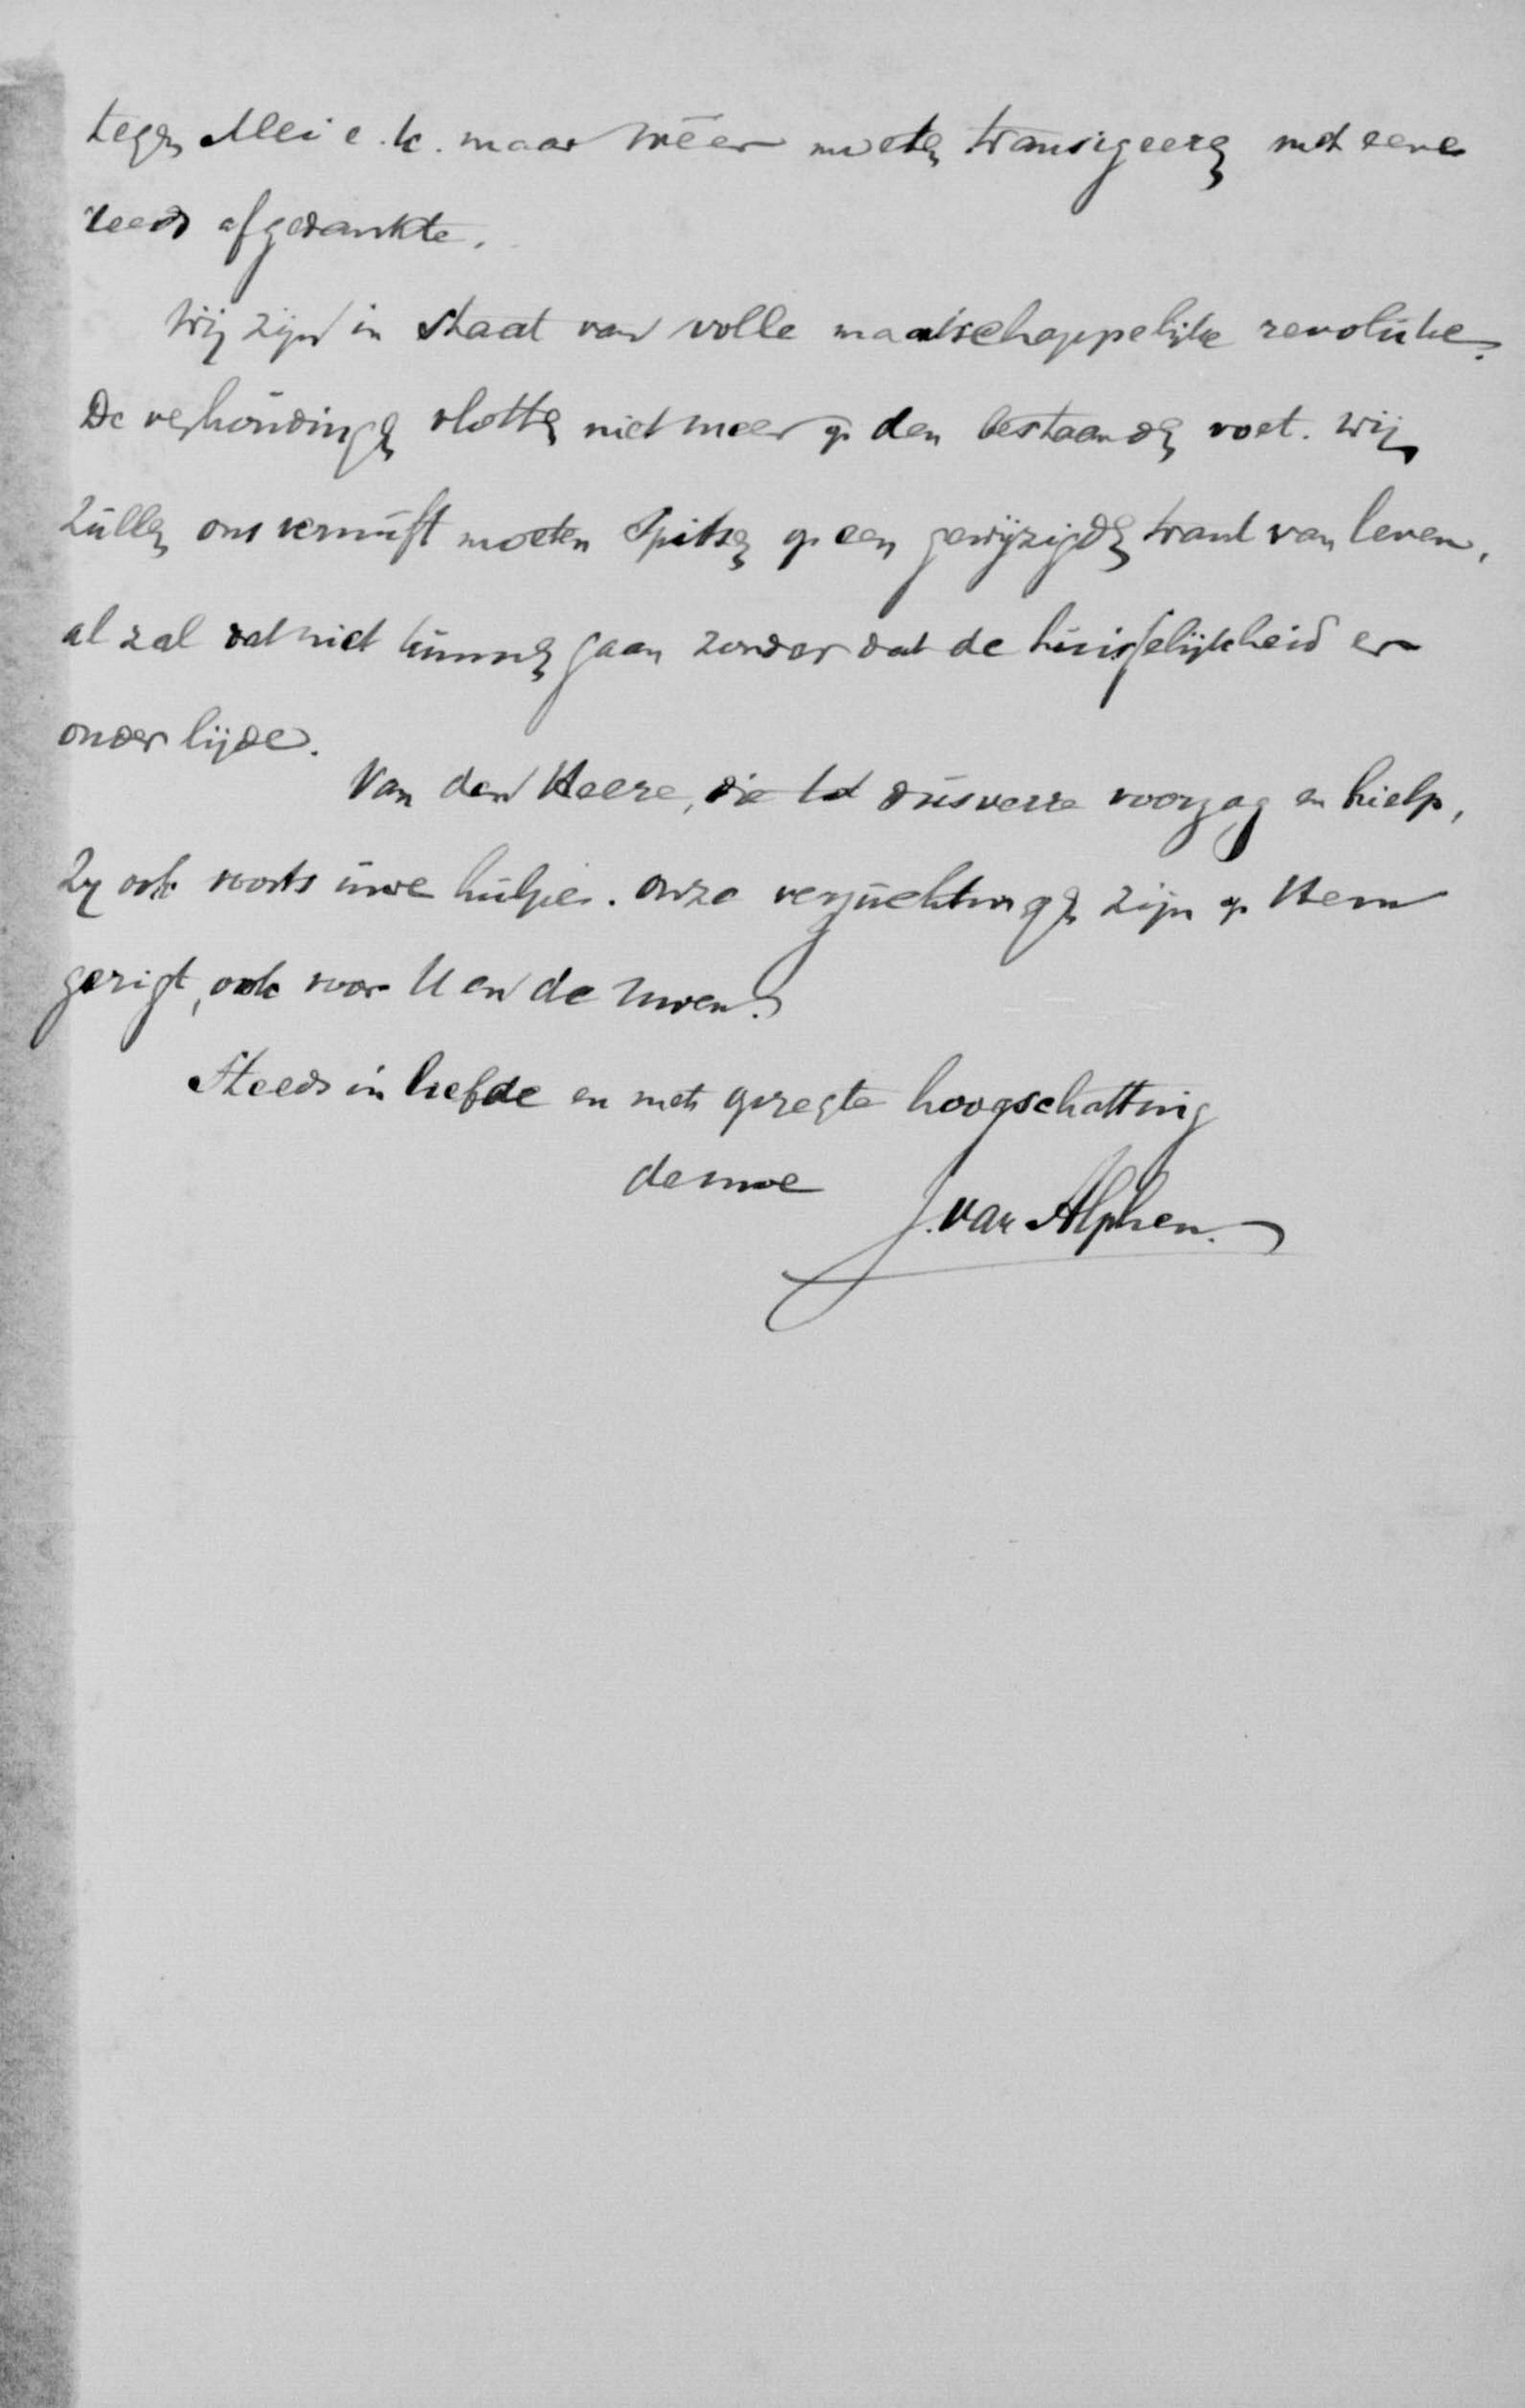 tegen Mei e.k. maar weer moeten transigeeren met eene
reeds afgedankte.
Wij zijn in staat van volle maatschappelijke revolutie.
De verhoudingen vlotten niet meer op den bestaanden voet. Wij
zullen ons vernuft moeten spitsen op een gewijzigden trant van leven,
al zal dat niet kunnen gaan zonder dat de huisselijkheid er
onder lijde.
Van den Heere, die tot dusverre voorzag en hielp,
zij ook voorts uwe hulpe. Onze verzuchtingen zijn op Hem
gerigt, ook voor U en de Uwen.
Steeds in liefde en met geregte hoogschatting
de uwe
J. van Alphen.